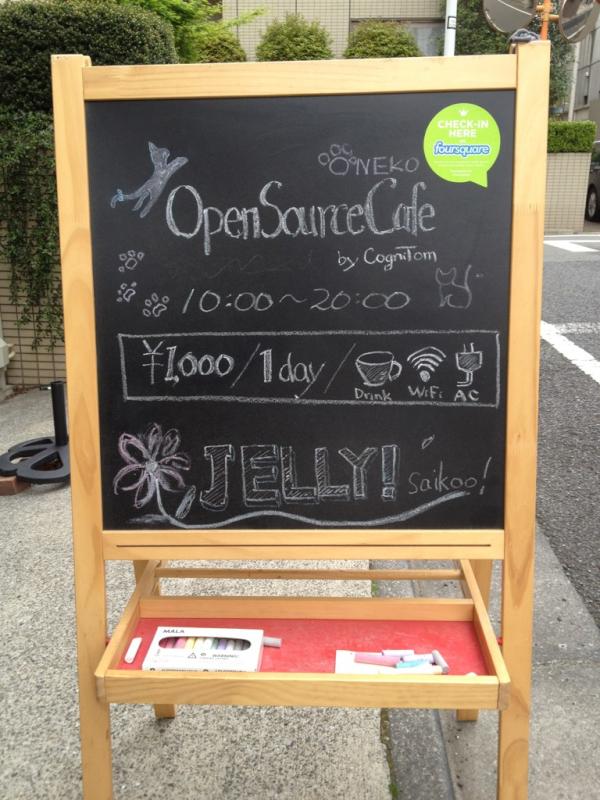 CHECK-IN
HERE
on
foursquare
NEKO
OpenSourceCafe
by CogniTom
10:00～20:00
¥1,000/1day/
Drink WiFi AC
JELLY! Saikoo!
MÅLA
WARNING: